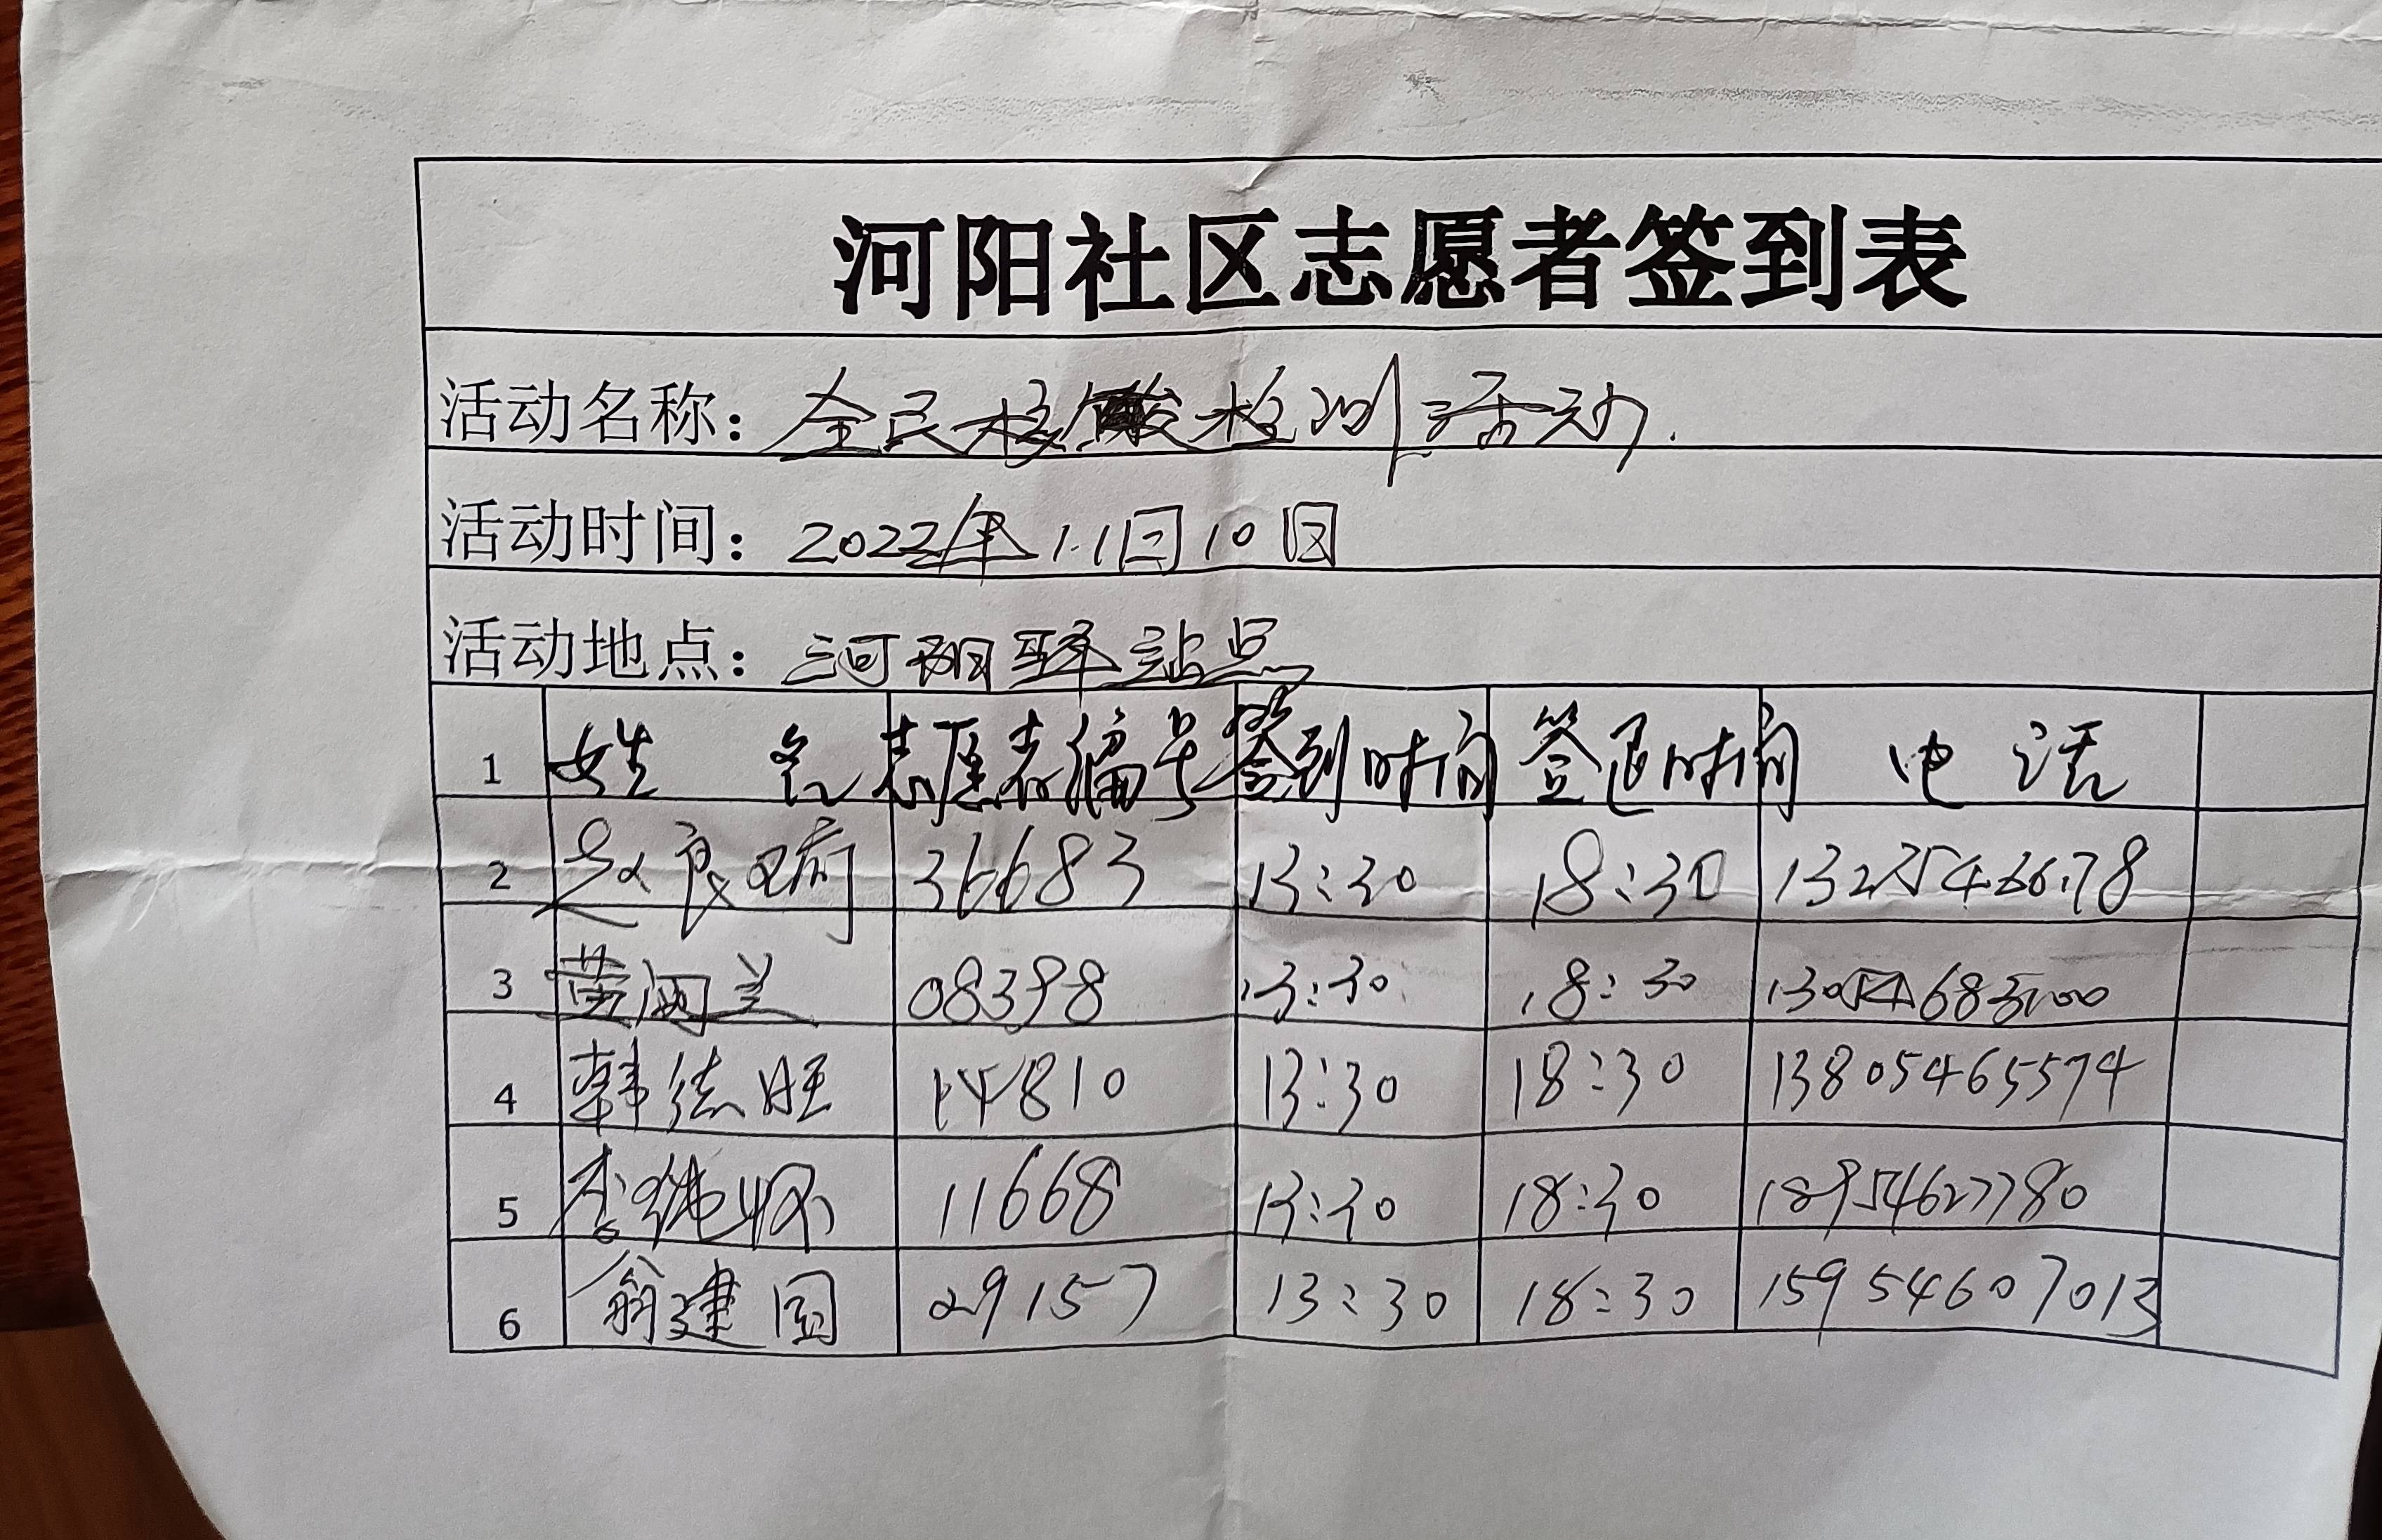 河阳社区志愿者签到表
活动名称：全民核酸检测活动.
活动时间：2022年11日10日
活动地点：河阳驿站点
1 姓 名 志愿者编号 签到时间 签退时间 电 话
2 36683 13:30 18:30
3 08398 13:30 18:30
4 韩德旺 14810 13:30 18:30 13805465574
5 11668 13:30 18:30 18954627780
6 翁建国 29157 13:30 18:30 15954607013